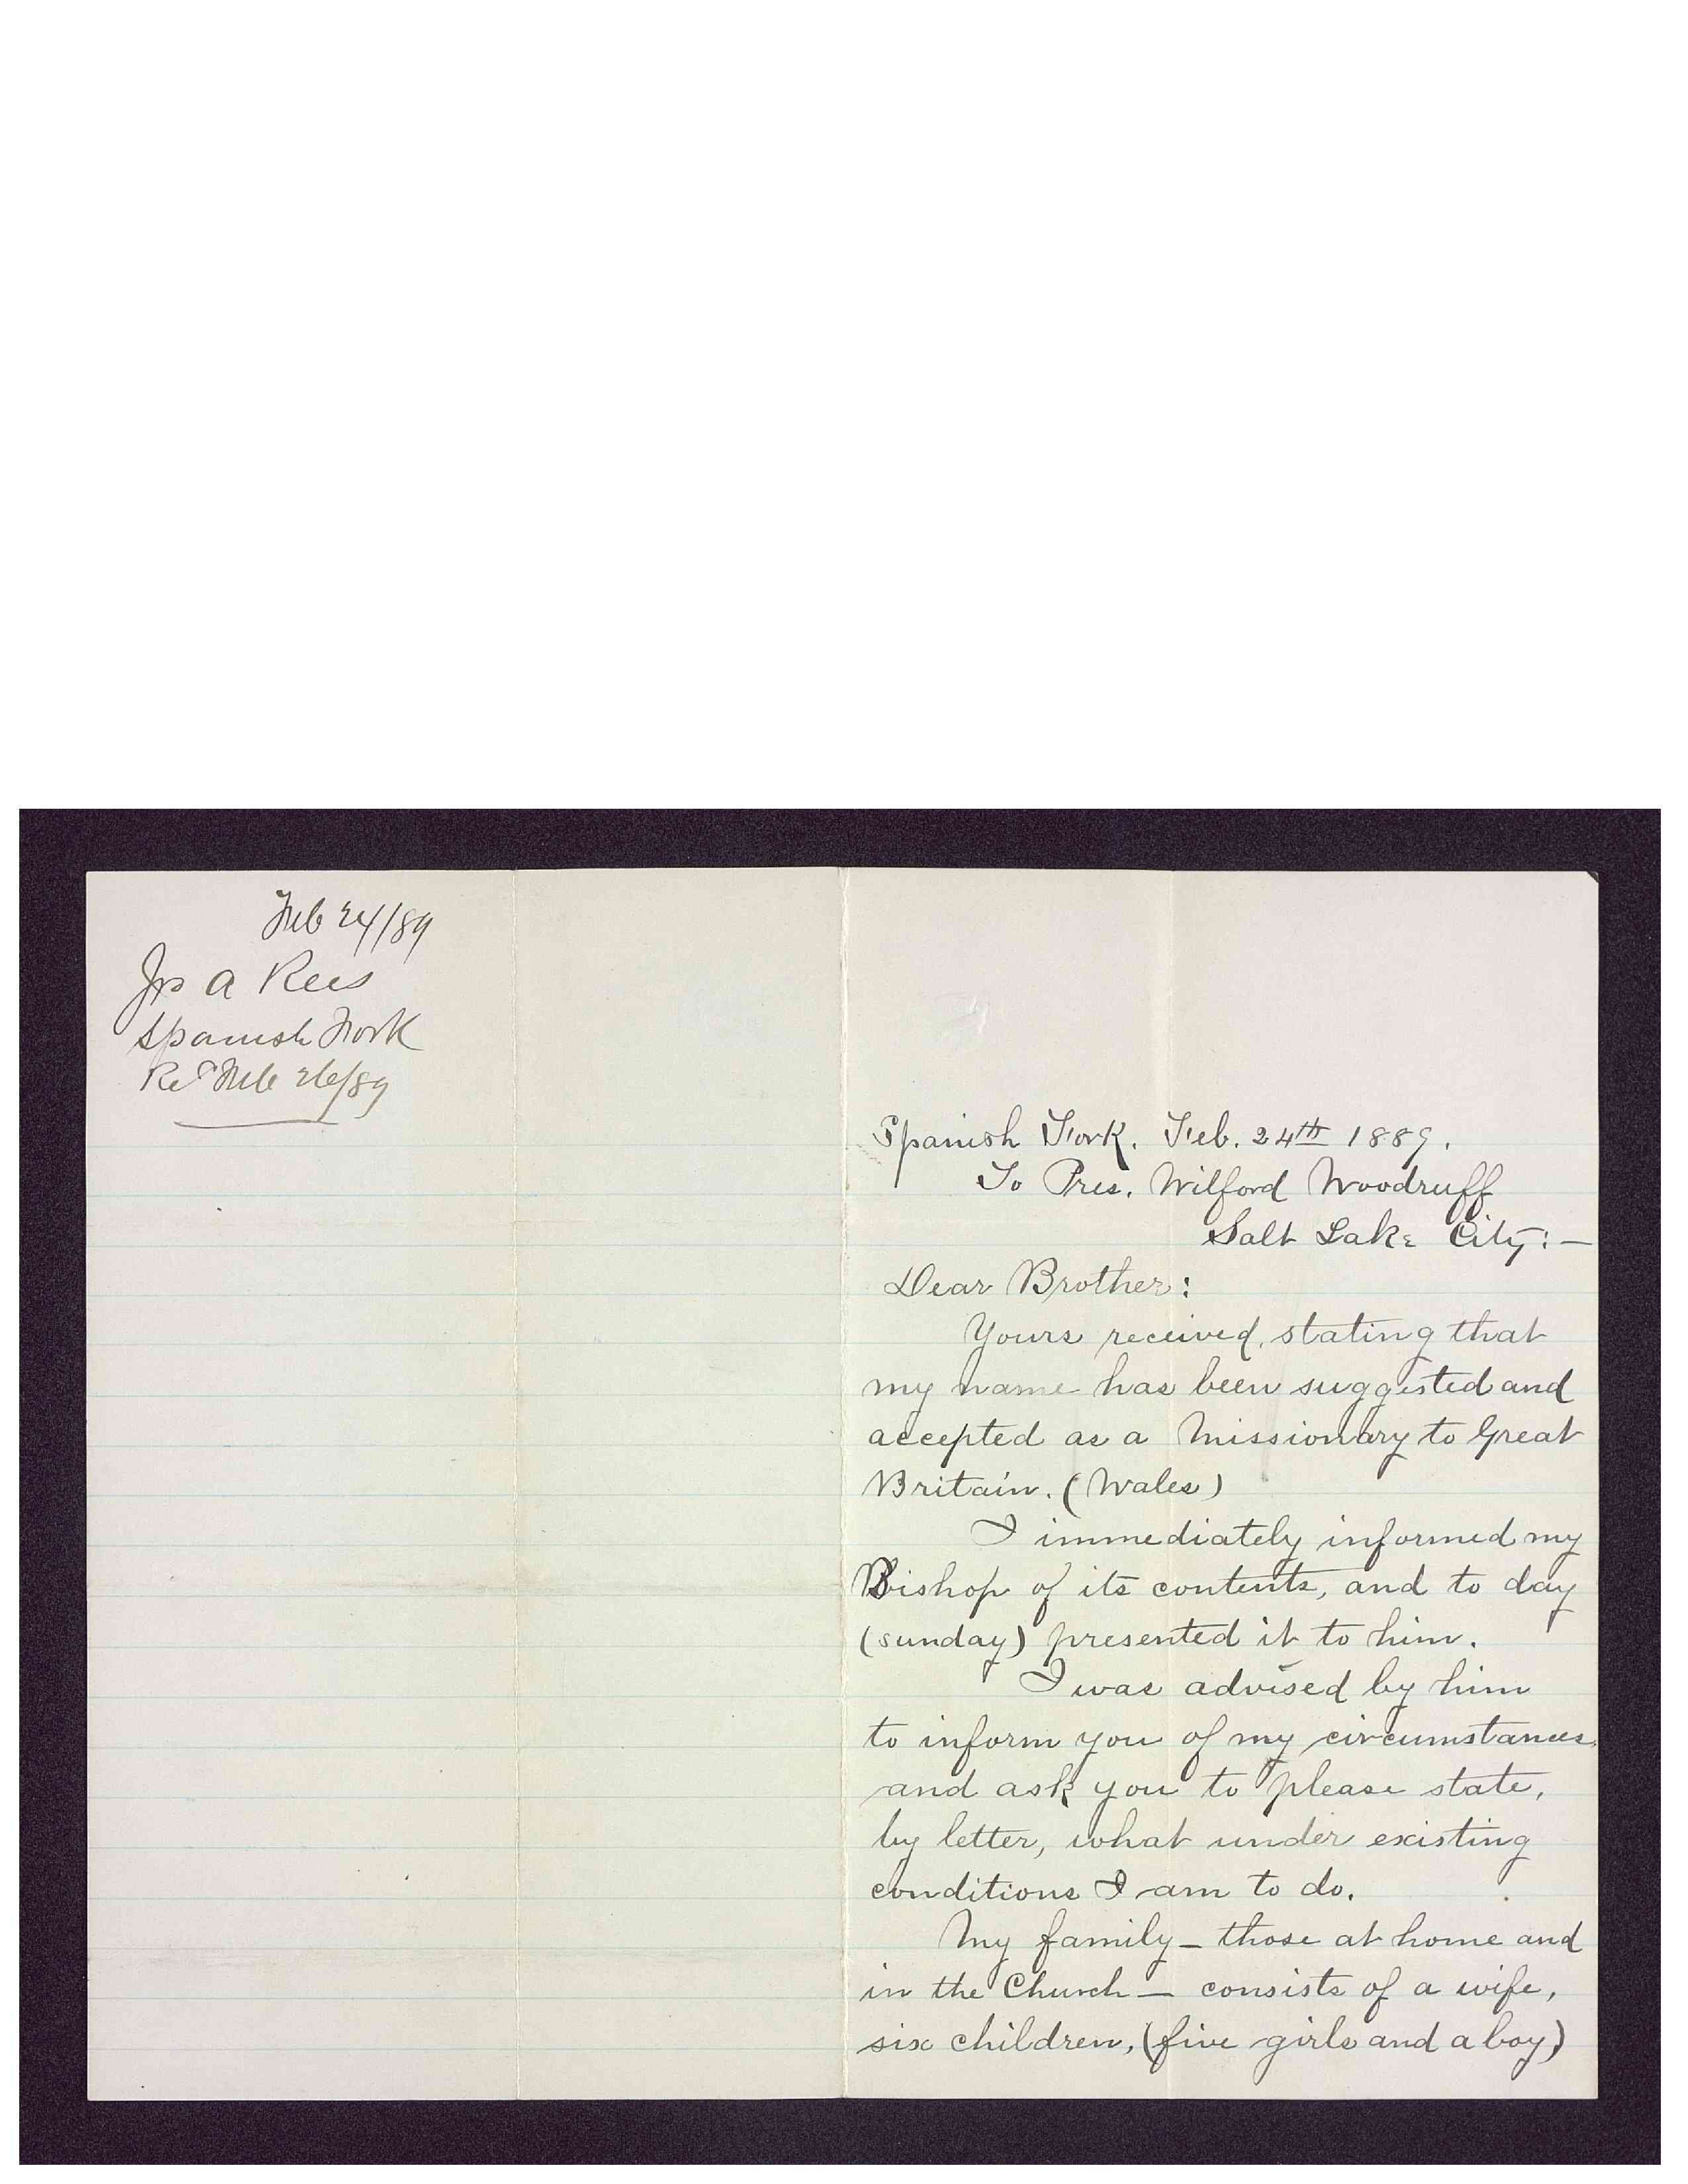 Feb 24/89
Jno A Rees
Spanish Fork
Recd Feb 26/89
Spanish Fork. Feb. 24th 1889.
To Pres. Wilford Woodruff
Salt Lake City:—
Dear Brother:
Yours received, stating that
my name has been suggested and
accepted as a Missionary to Great
Britain. (Wales)
I immediately informed my
Bishop of its contents, and to day
(sunday) presented it to him.
I was advised by him
to inform you of my circumstances,
and ask you to please state,
by letter, what under existing
conditions I am to do.
My family — those at home and
in the Church — consists of a wife,
six children, (five girls and a boy)